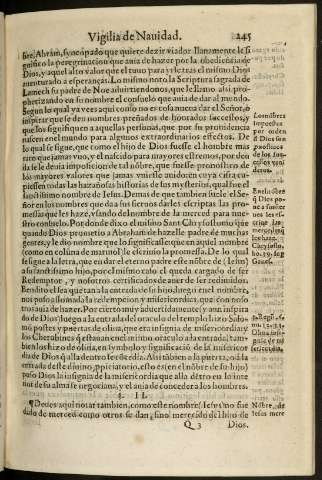 Vigilia de Nauidad. 245
fue, Abrám, y no o padó que quiere dezir viador llanamente le si
gnifico la peregrinacion que auia de hazer por la obediencia de
Dios, y aquel alto valor que el tuuo para y rse tras el mismo Dios
auenturado a esperanças. Lo mismo noto la Scriptura sagrada de
Lamech su padre de Noe aduirtiendonos, que le llamo assi, pro
phetizando en su nombre el consuelo que auia de dar al mundo.
Segun lo qual ya veys aqui como no es cosa nueua dar el Señor, o
inspirar que se den nombres preñados de honrados successos, y
que los signifiquen a aquellas personas, que por su prouidencia
nascen en el mundo para algunos extraordinarios effectos. De
lo qual se sigue, que como el hijo de Dios fuesse el hombre mas
raro que jamas vuo, y el nascido para mayores estremos, por den
de se le deuia imposicion de tal nôbre, que fuesse pronostico de
los mayores valores que jamas vuiesse
essen todas las hazañosas historias de sus mysterios, qual fue el
sanctissimo nombre de Iesus. Demas de que tambien suele el Se-
ñor en los nombres que da a sus sieruos darles escriptas las pro-
messas que les haze, vsando del nombre de la merced para nues-
tro consuelo. Por donde dixo el mismo Sant Chrysostomo que
quando Dios prometio a Abraham de hazelle padre de muchas
gentes, y le dio nombre que lo significasse que en aquel nombre
(como en coluna de marmol) le escriuio la promessa. De lo qual
se sigue a la letra, que en dar el eterno padre esse nôbre de (Iesus)
a su sanctissimo hijo, por el mismo caso el queda cargado de ser
Redemptor, y nosotros certificados de auer de ser redimidos.
Bendito el sea que tan a la entrada de su hijo al templo el nombre,
nos puso assomada la redempcion y misericordia, qual con noso
tros auia de hazer. Por cierto muy aduertidamente (y aun inspira
do de Dios) luego a la entrada del oraculo del templo hizo Salo-
mô postes y puertas de oliua, que era insignia de misericordia: y
los Cherubines que estauan en el mismo oraculo a la entrada; tam
bien los hizo de oliua, en symbolo y significaciô de la misericor-
dia de Dios q̃ alla dentro se escôdia. Assi tâbien a la puerta, o a la
entrada deste diuino, ppiciatorio, esto es (en el nôbre de su hijo)
puso Dios la insignia de la misericordia que alla dêtro en lo inte
rior de su alma se negociaua, y el auia de conceder a los hombres.
§. II.
¶Deues aqui notar tambien, como este nombre Iesus no fue
dado de merced como otros se dan, sino merecido del hijo de
Q 3 Dios.
Los nôbres
impuestos
por orden
d Dios son
pnosticos
de los con-
ueni
deros.
En el nôbre
q̃ Dios po-
ne a sus sier
uos les escri
ue las mer-
cedes que
les haze.
Chrysosto.
ho. 39. sup
Genes.
3. Regũ. 6.
nu. 31. 33.
Oliua insi-
gnia de mi
sericordia.
Nôbre, de
Iesus mere